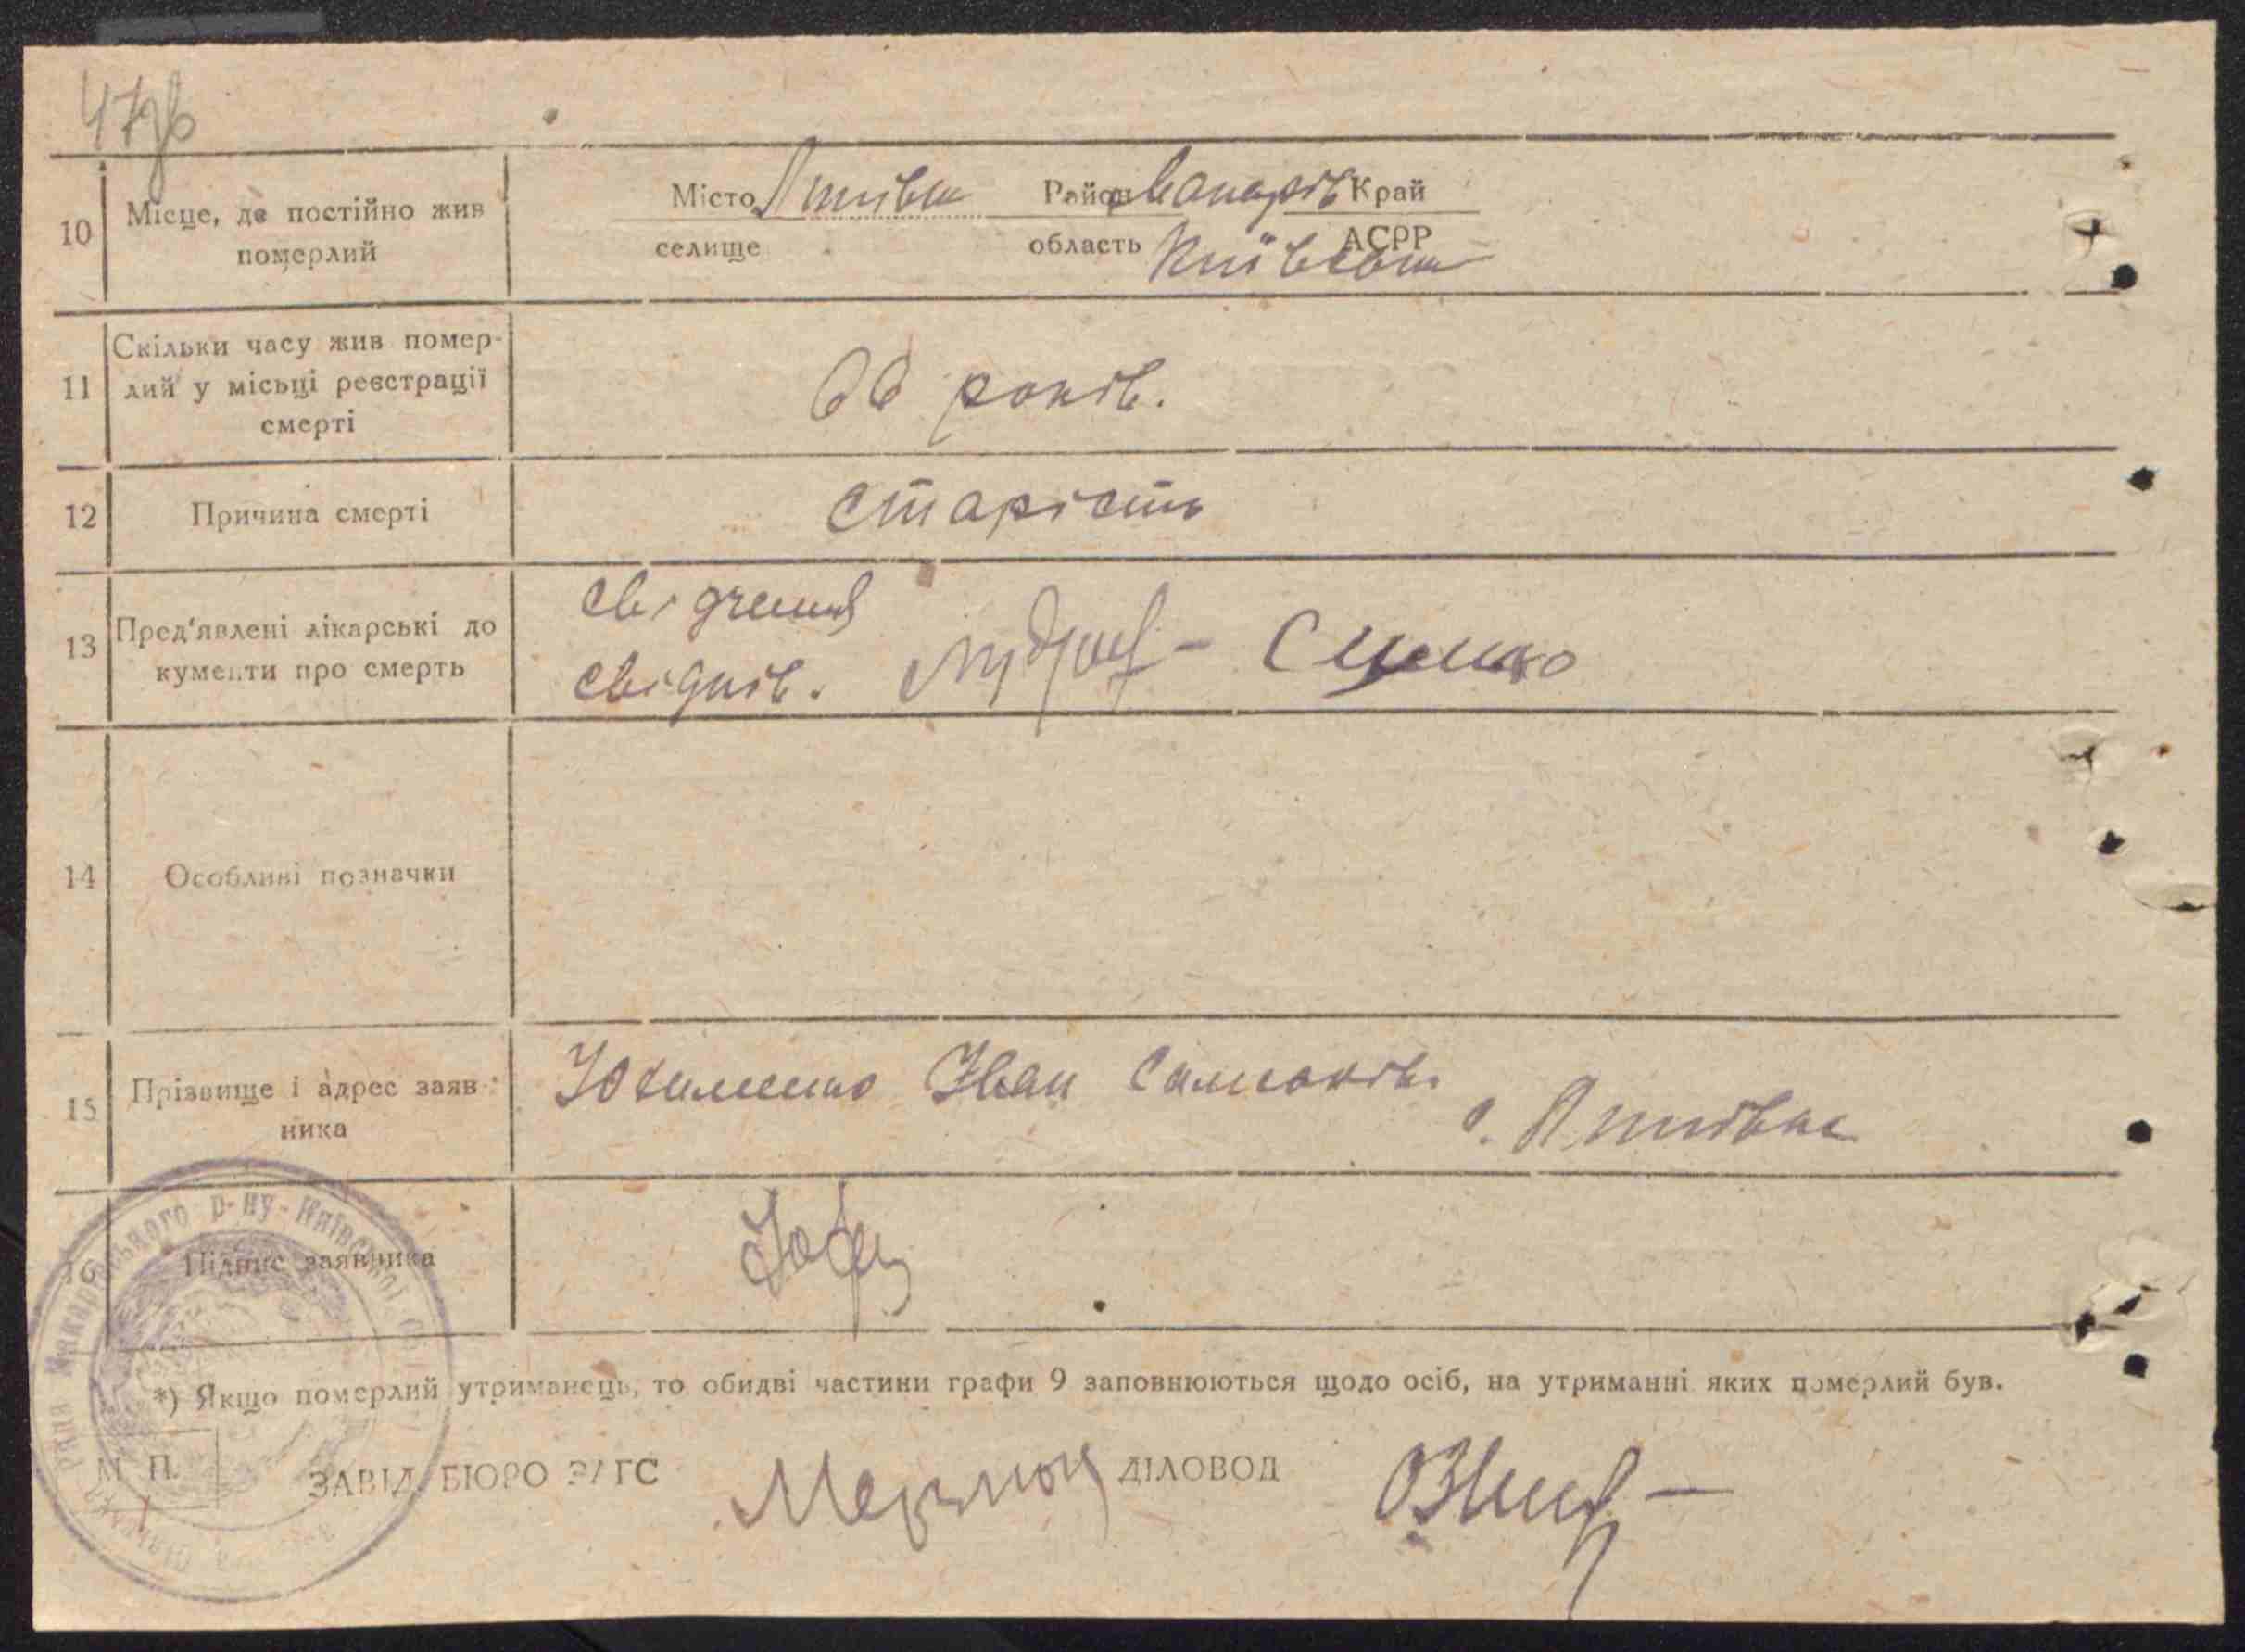 47зв
10 Місце, де постійно жив померлий
Місто Ятівка Район Макарів Край
селище область Київська АСРР
11 Скільки часу жив помер-
лий у місьці реєстрації
смерті
66 років.
12 Причина смерті
старість
13 Пред'явлені лікарські до
кументи про смерть
свідчення
свідків.
14 Особливі позначки
15 Прізвище і адрес заяв-
ника
Юхименко Іван
16 Підпис заявника
*) Якщо померлий утриманець, то обидві частини графи 9 заповнюються щодо осіб, на утриманні яких померлий був.
М. П. ЗАВІД. БЮРО ЗАГС ДІЛОВОД